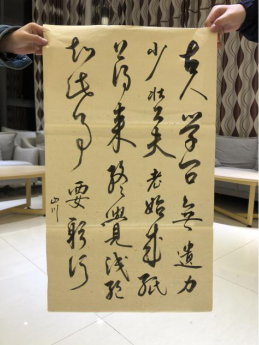 古人学问無遺力
少壮工夫老始成紙
上得来終覺浅絕
知此事要躬行
山川